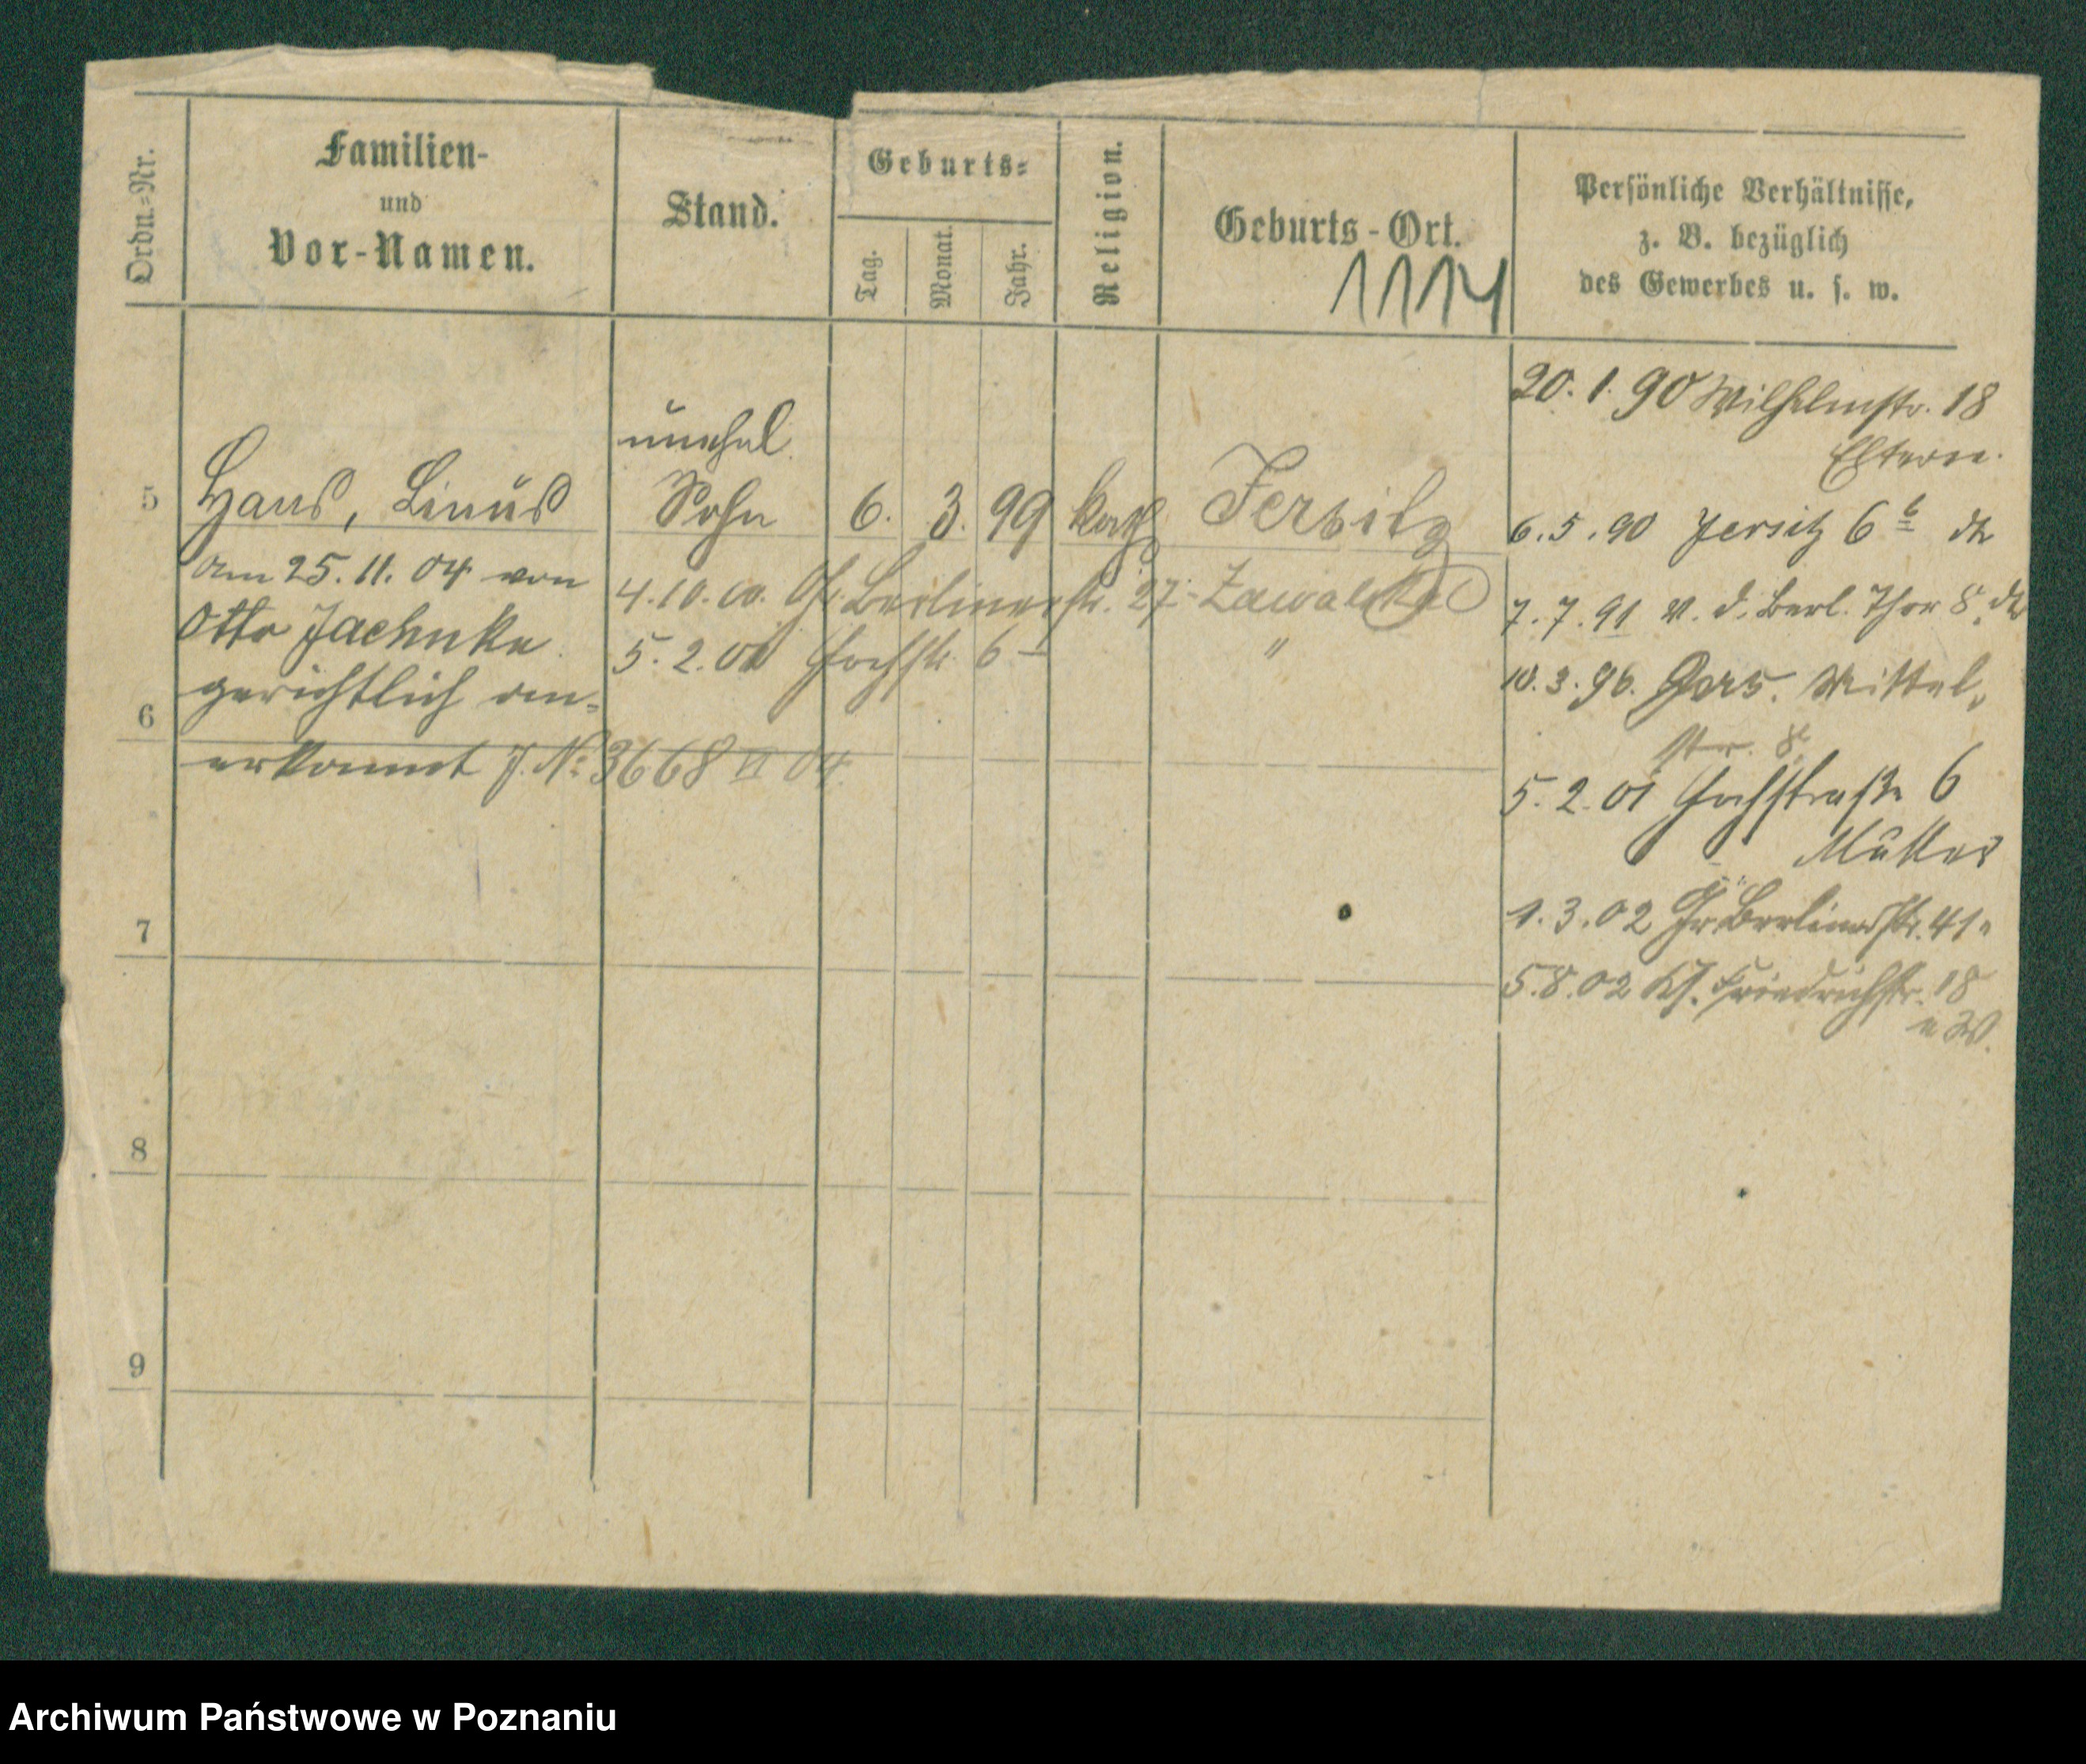 Ordn.-Nr.
Familien-
und
Vor-Namen.
Stand.
Geburts-
Tag.
Monat.
Jahr.
Religion.
Geburts-Ort.
1114
Persönliche Verhältnisse,
z. B. bezüglich
des Gewerbes u. s. w.
5
Hans, Linus
unehel.
Sohn
6. 3. 99
kath
Jersitz
am 25. 11. 04 von
Otto Jaehnke
gerichtlich an-
erkannt J. No 3668 VI 04.
4. 10. 00. Gr. Berlinerstr. 27
5. 2. 01 Hochstr. 6
"
6
7
8
9
20. 1. 90 Wilhelmstr. 18
Eltern.
6. 5. 90 Jersitz 6
7. 7. 91 v. d. Berl. Thor 8.
10. 3. 96. Mittel-
str. 8
5. 2. 01 Hochstraße 6
Mutter
1. 3. 02 Gr. Berlinerstr. 41
5. 8. 02 Friedrichstr. 18
Archiwum Państwowe w Poznaniu